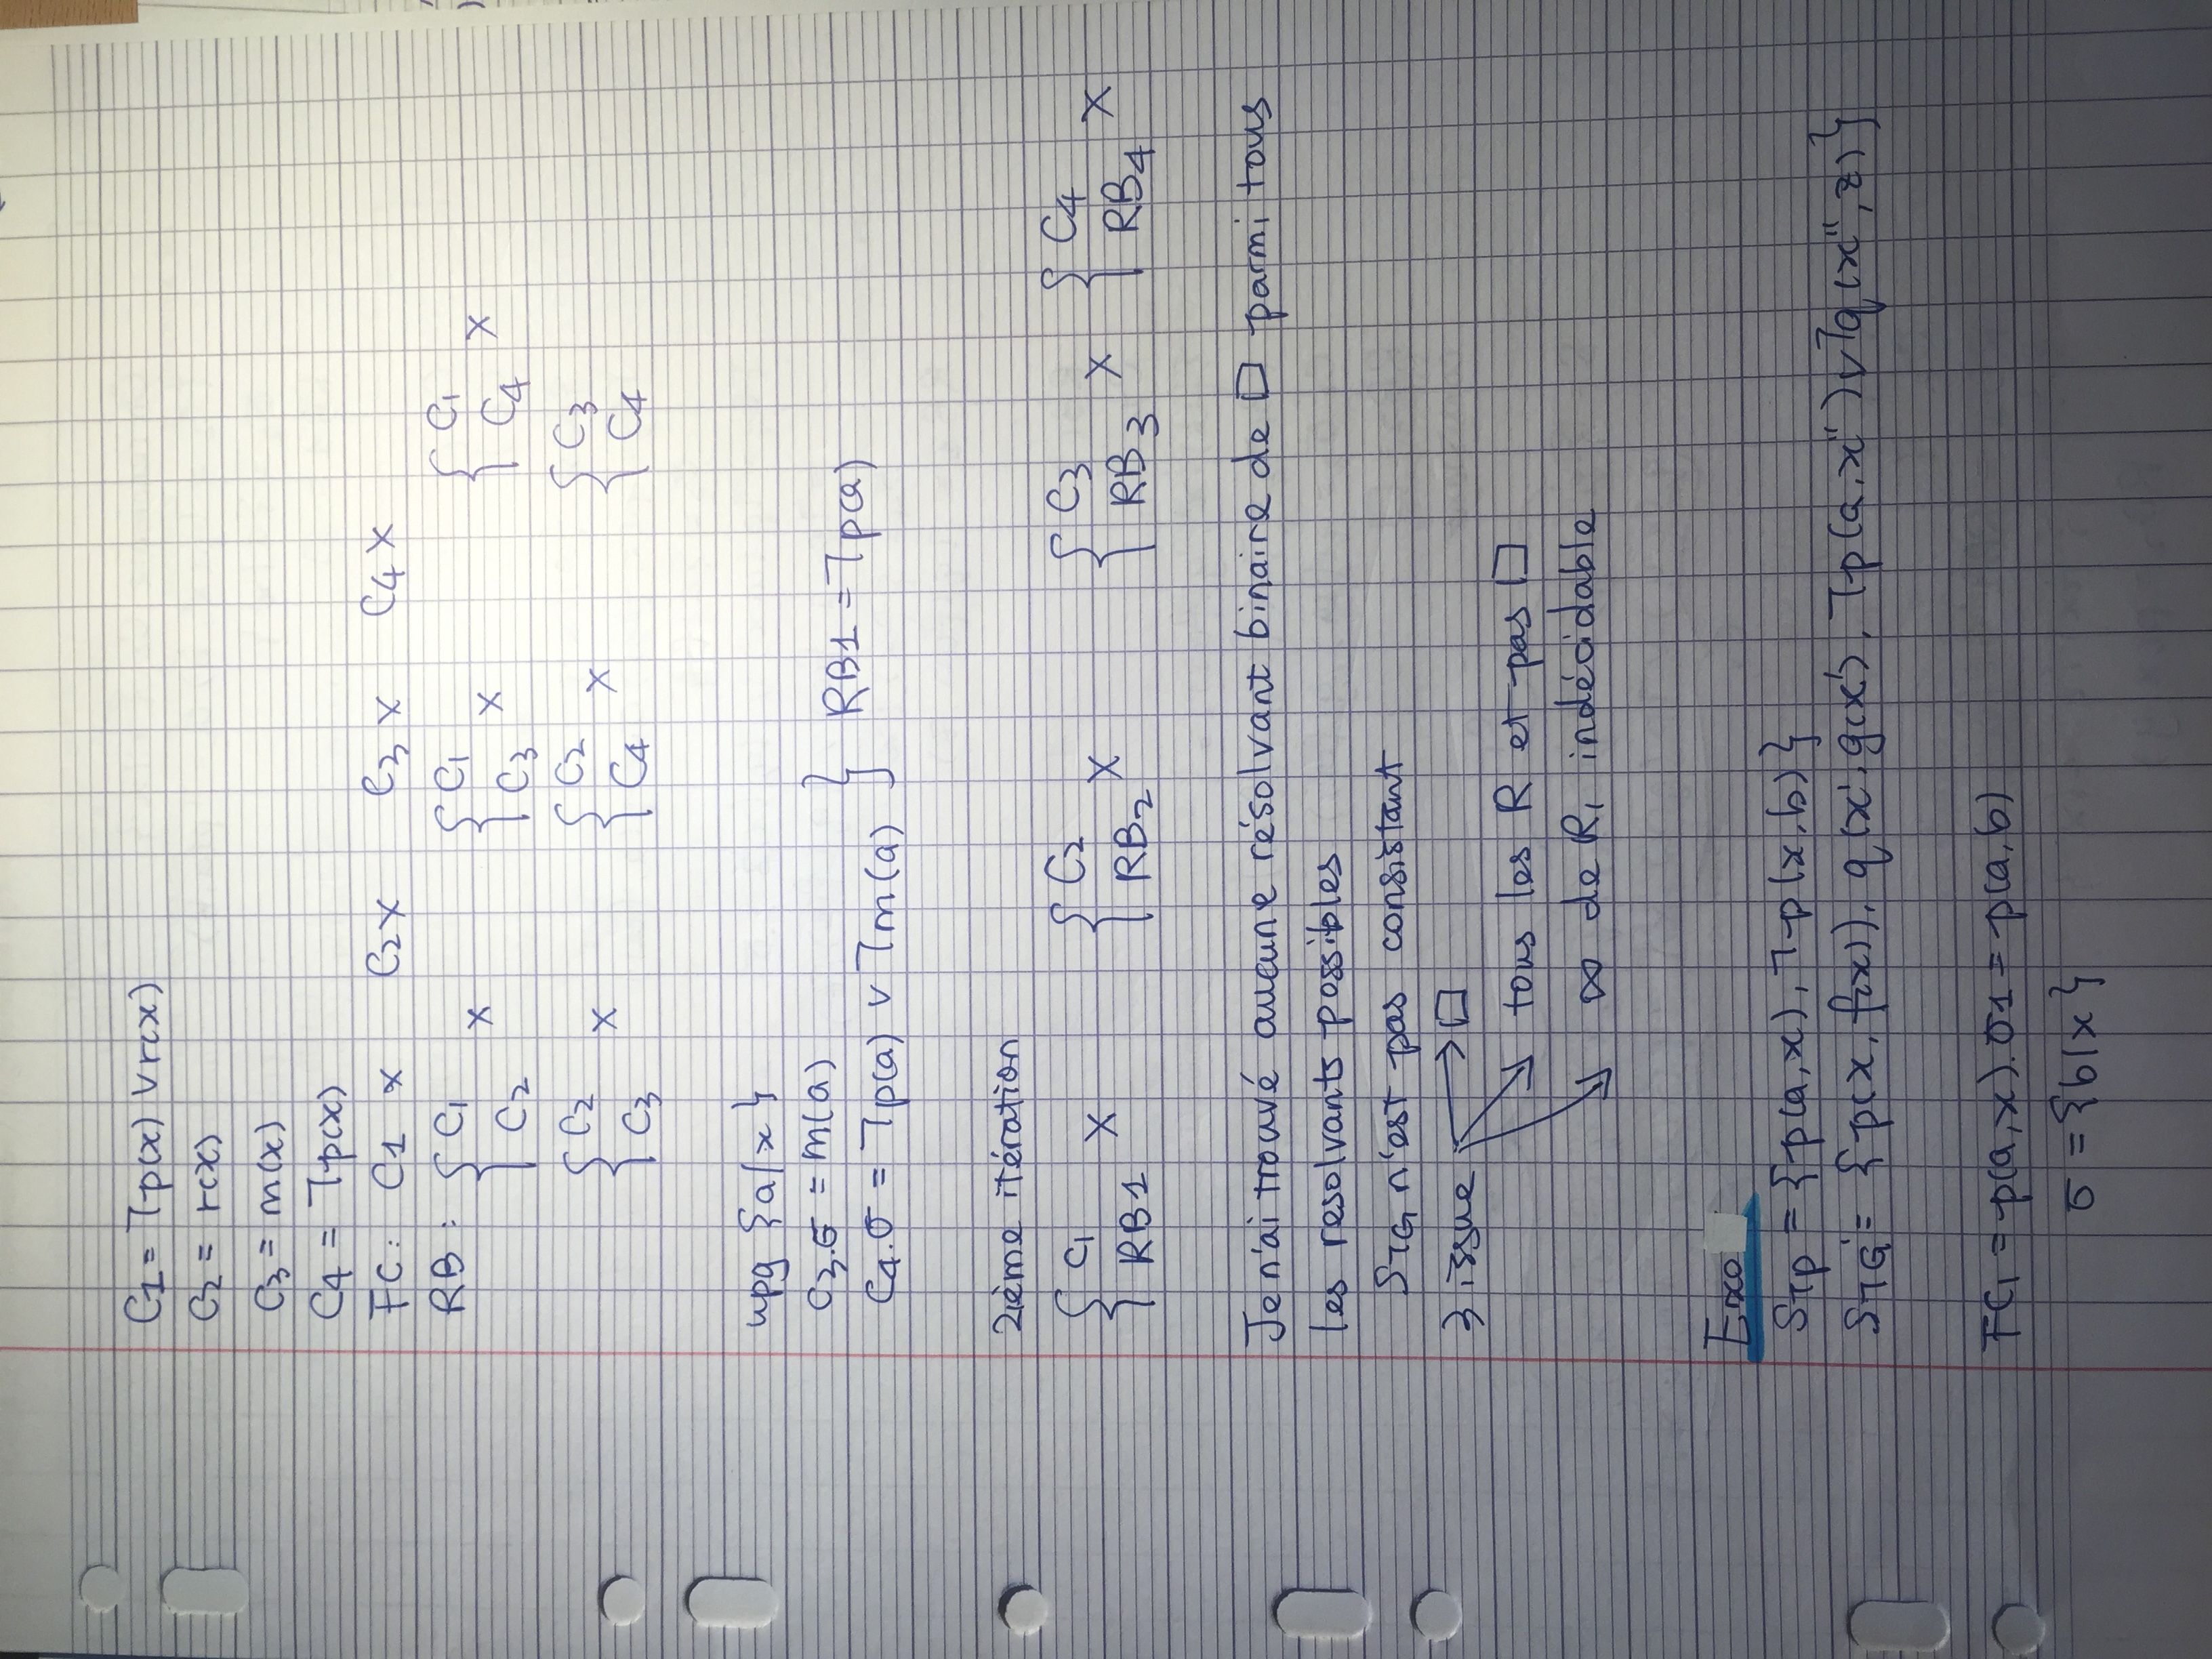 C1 = ¬p(x) ∨ r(x)
C2 = r(x)
C3 = m(x)
C4 = ¬p(x)
FC : C1 x C2 x C3 x C4 x
RB : { C1 C2 x { C1 C3 x { C1 C4 x
{ C2 C3 x { C2 C4 x { C3 C4
upg {a/x}
C3.σ = m(a)
C4.σ = ¬p(a) ∨ ¬m(a) } RB1 = ¬p(a)
2ième itération
{ C1 RB1 x { C2 RB2 x { C3 RB3 x { C4 RB4 x
Je n'ai trouvé aucune résolvant binaire de □ parmi tous
les resolvants possibles
S¬G n'est pas consistant
3 issue → □
↘ tous les R et pas □
↘ ∞ de R, indécidable
Exo
S¬p = {p(a,x), ¬p(x,b)}
S¬G' = {p(x, f(x)), q(x', g(x'), ¬p(a,x'') ∨ ¬q(x'', z)}
FC1 = p(a,x).σ1 = p(a,b)
σ = {b/x}